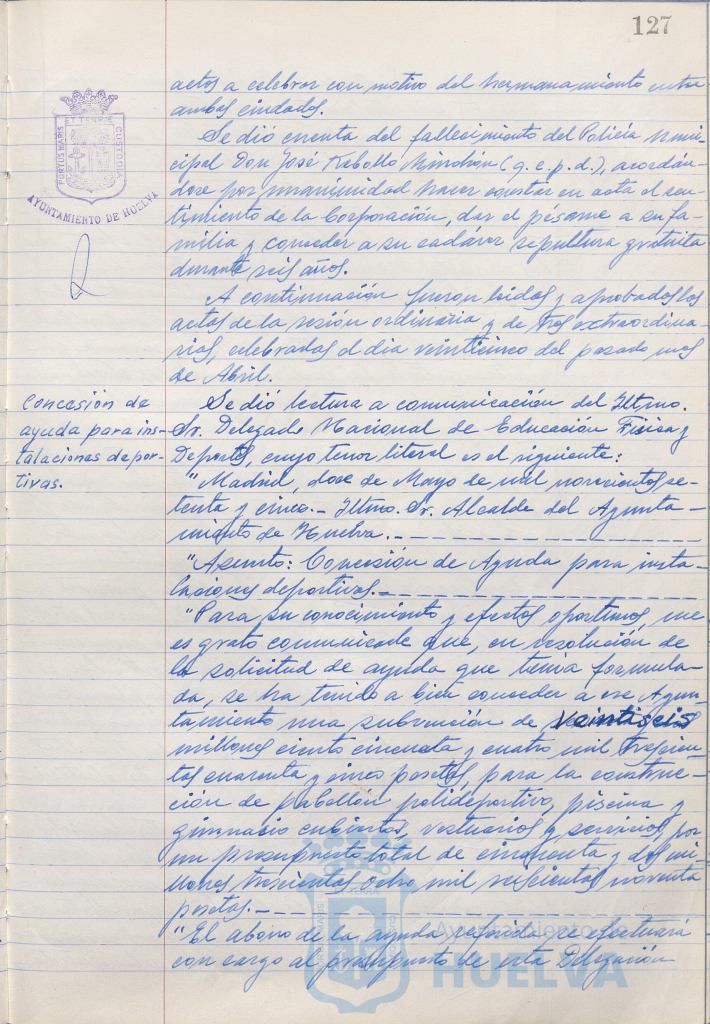 127
actos a celebrar con motivo del hermanamiento entre
ambas ciudades.
Se dió cuenta del fallecimiento del Policía Muni-
cipal Don José Rebollo (q.e.p.d.), acordán-
dose por unanimidad hacer constar en acta el sen-
timiento de la Corporación, dar el pésame a su fa-
milia y conceder a su cadáver sepultura gratuita
durante seis años.
A continuación fueron leidas y aprobadas las
actas de la sesión ordinaria y de tres extraordina-
rias, celebradas el dia veinticinco del pasado mes
de Abril.
Concesión de
ayuda para ins-
talaciones depor-
tivas.
Se dió lectura a comunicación del Iltmo.
Sr. Delegado Nacional de Educación Física y
Deportes, cuyo tenor literal es el siguiente:
"Madrid, doce de Mayo de mil novecientos se-
tenta y cinco.- Iltmo. Sr. Alcalde del Ayunta-
miento de Huelva.-
"Asunto: Concesión de Ayuda para insta-
laciones deportivas.-
"Para su conocimiento y efectos oportunos, me
es grato comunicarle que, en resolución de
la solicitud de ayuda que tenía formula-
da, se ha tenido a bien conceder a ese Ayun-
tamiento una subvención de veintiseis
millones ciento cincuenta y cuatro mil trescien-
tas cuarenta y cinco pesetas, para la construc-
ción de pabellón polideportivo, piscina y
gimnasio cubiertos, vestuarios y servicios, por
un presupuesto total de cincuenta y dos mi-
llones trescientas ocho mil seiscientas noventa
pesetas.-
"El abono de la ayuda referida se efectuará
con cargo al presupuesto de esta Delegación
ET TERRAE
PORTUS MARIS
CUSTODIA
AYUNTAMIENTO DE HUELVA
Ayuntamiento de
HUELVA